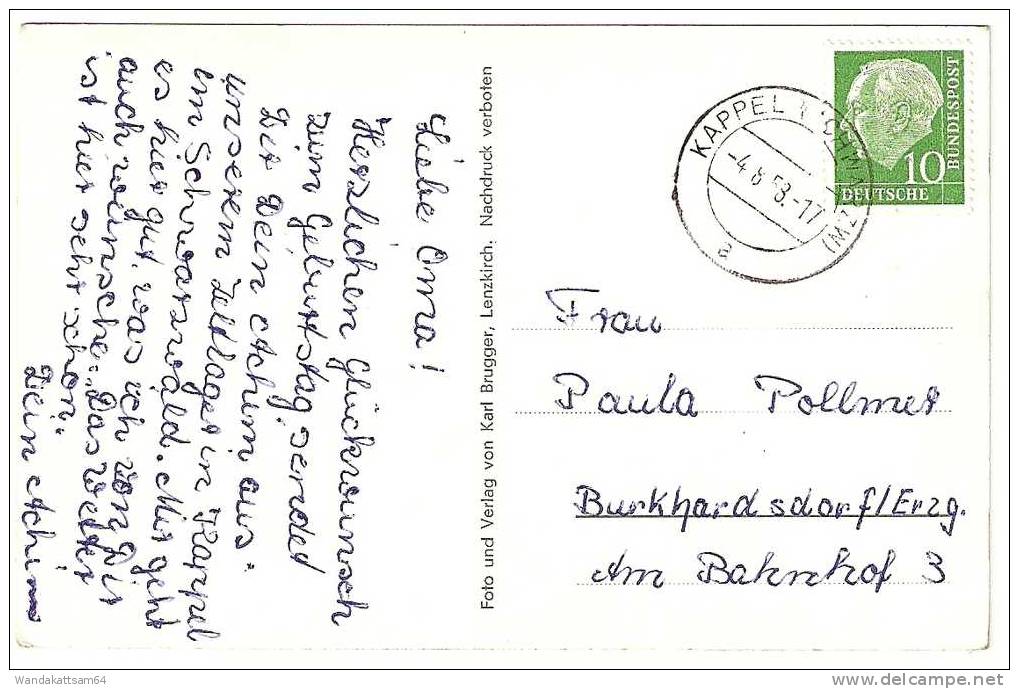 Liebe Oma!
Herzlichen Glückwunsch
zum Geburtstag, sendet
Dir Dein Achim aus
unserem Zeltlager in Kappel
im Schwarzwald. Mir geht
es hier gut, was ich von Dir
auch wünsche. Das Wetter
ist hier sehr schön.
Dein Achim
Foto und Verlag von Karl Brugger, Lenzkirch. Nachdruck verboten
KAPPEL
-4.8.58.-17
a
10
DEUTSCHE
BUNDESPOST
Frau
Paula Pollmer
Burkhardsdorf/Erzg.
Am Bahnhof 3
Wandakattsam64
delcampe.net